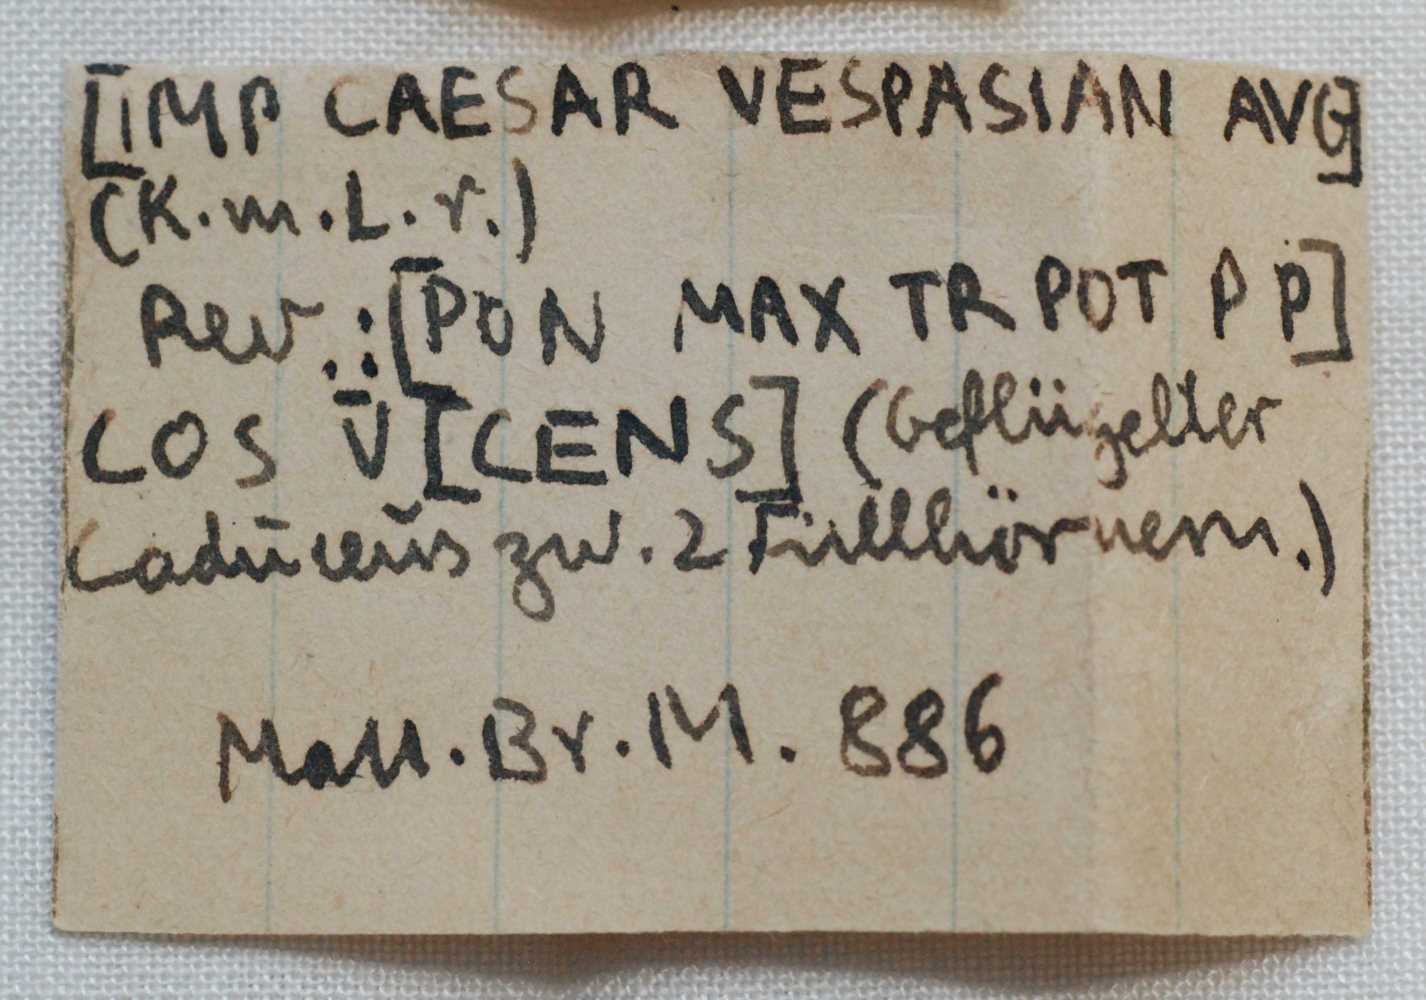 [IMP CAESAR VESPASIAN AVG]
(K.m.L.r.)
Rev.:[PON MAX TR POT P P]
COS V̄ [CENS] (Geflügelter
Caduceus zw. 2 Füllhörnern.)
Matt.Br.M. 886